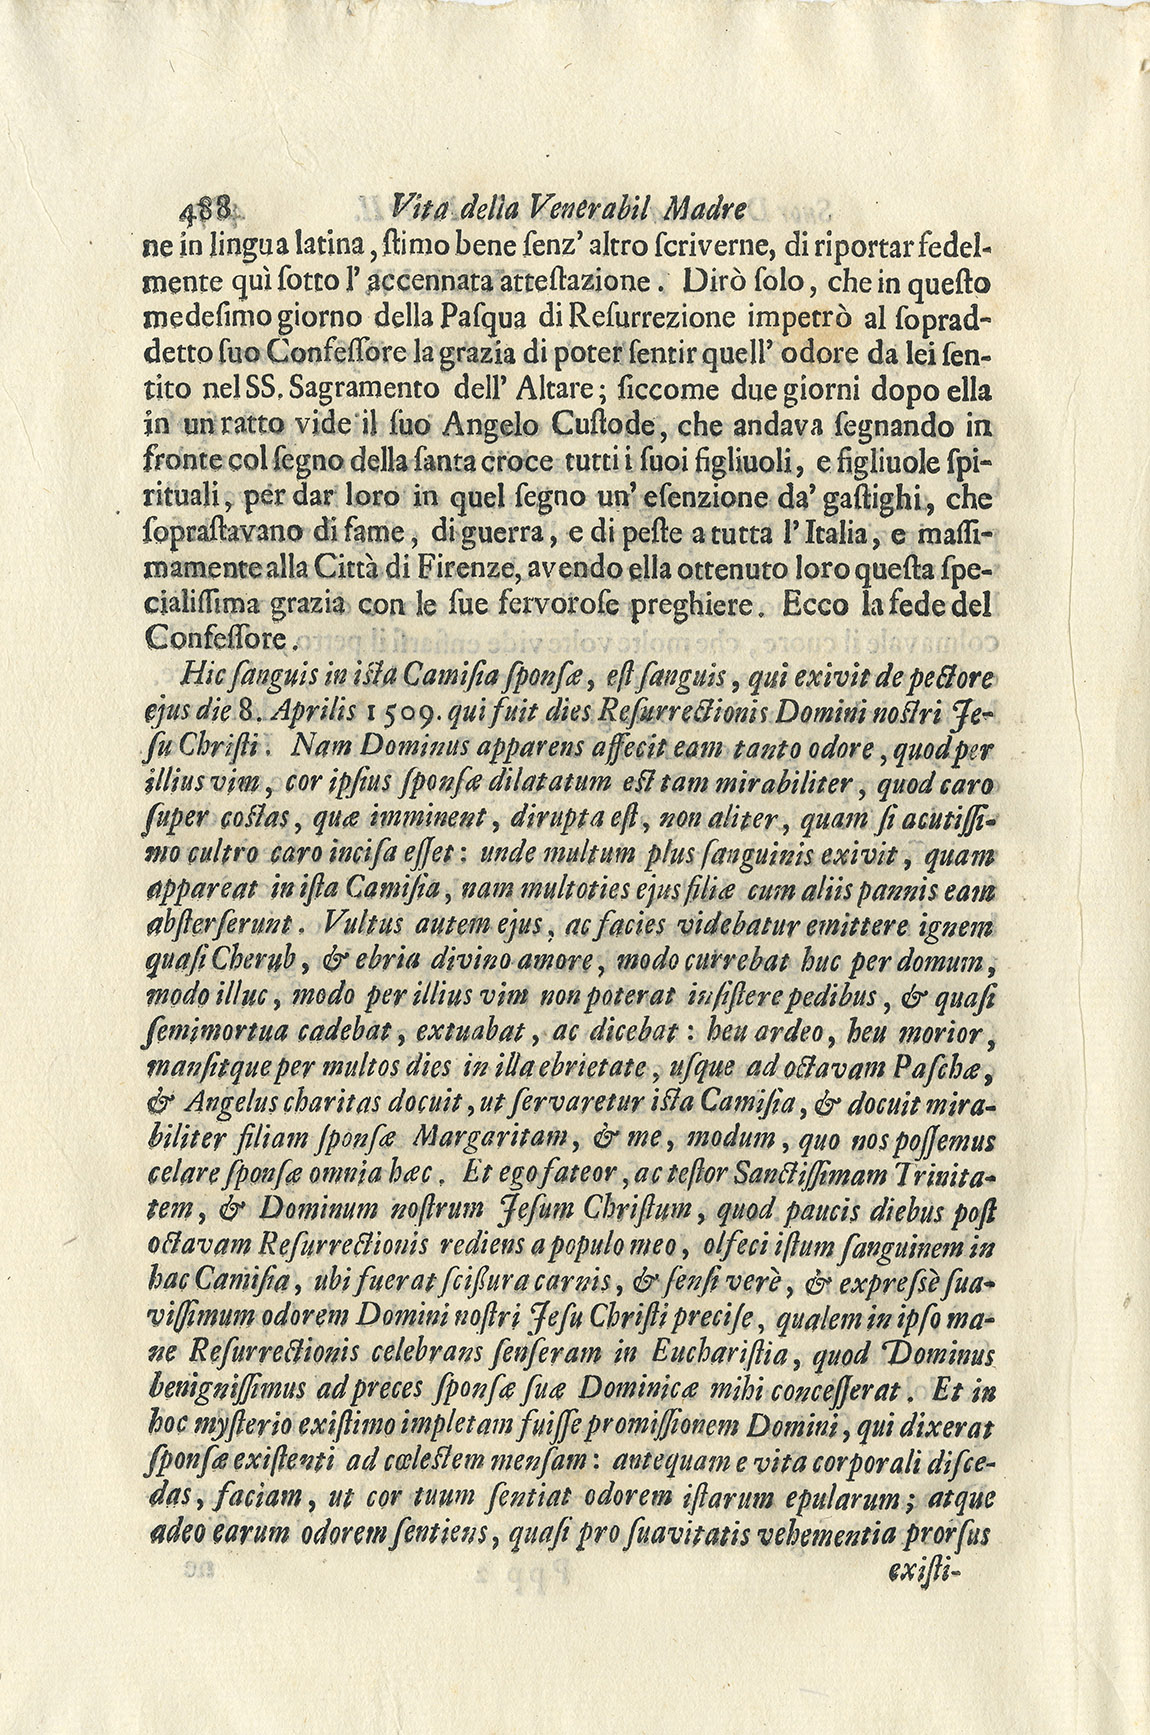 488 Vita della Venerabil Madre
ne in lingua latina, ſtimo bene ſenz' altro ſcriverne, di riportar fedel-
mente quì ſotto l' accennata atteſtazione. Dirò ſolo, che in queſto
medeſimo giorno della Paſqua di Reſurrezione impetrò al ſoprad-
detto ſuo Confeſſore la grazia di poter ſentir quell' odore da lei ſen-
tito nel SS. Sagramento dell' Altare; ſiccome due giorni dopo ella
in un ratto vide il ſuo Angelo Cuſtode, che andava ſegnando in
fronte col ſegno della ſanta croce tutti i ſuoi figliuoli, e figliuole ſpi-
rituali, per dar loro in quel ſegno un' eſenzione da' gaſtighi, che
ſopraſtavano di fame, di guerra, e di peſte a tutta l' Italia, e maſſi-
mamente alla Città di Firenze, avendo ella ottenuto loro queſta ſpe-
cialiſſima grazia con le ſue fervoroſe preghiere. Ecco la fede del
Confeſſore.
Hic ſanguis in iſta Camiſia ſponſæ, eſt ſanguis, qui exivit de pectore
ejus die 8. Aprilis 1509. qui fuit dies Reſurrectionis Domini noſtri Je-
ſu Chriſti. Nam Dominus apparens affecit eam tanto odore, quod per
illius vim, cor ipſius ſponſæ dilatatum eſt tam mirabiliter, quod caro
ſuper coſtas, quæ imminent, dirupta eſt, non aliter, quam ſi acutiſſi-
mo cultro caro inciſa eſſet: unde multum plus ſanguinis exivit, quam
appareat in iſta Camiſia, nam multoties ejus filiæ cum aliis pannis eam
abſterſerunt. Vultus autem ejus, ac facies videbatur emittere ignem
quaſi Cherub, & ebria divino amore, modo currebat huc per domum,
modo illuc, modo per illius vim non poterat inſiſtere pedibus, & quaſi
ſemimortua cadebat, extuabat, ac dicebat: heu ardeo, heu morior,
manſitque per multos dies in illa ebrietate, uſque ad octavam Paſchæ,
& Angelus charitas docuit, ut ſervaretur iſta Camiſia, & docuit mira-
biliter filiam ſponſæ Margaritam, & me, modum, quo nos poſſemus
celare ſponſæ omnia hæc. Et ego fateor, ac teſtor Sanctiſſimam Trinita-
tem, & Dominum noſtrum Jeſum Chriſtum, quod paucis diebus poſt
octavam Reſurrectionis rediens a populo meo, olfeci iſtum ſanguinem in
hac Camiſia, ubi fuerat ſciſſura carnis, & ſenſi verè, & expreſsè ſua-
viſſimum odorem Domini noſtri Jeſu Chriſti preciſe, qualem in ipſo ma-
ne Reſurrectionis celebrans ſenſeram in Euchariſtia, quod Dominus
benigniſſimus ad preces ſponſæ ſuæ Dominicæ mihi conceſſerat. Et in
hoc myſterio exiſtimo impletam fuiſſe promiſſionem Domini, qui dixerat
ſponſæ exiſtenti ad cœleſtem menſam: antequam e vita corporali diſce-
das, faciam, ut cor tuum ſentiat odorem iſtarum epularum; atque
adeo earum odorem ſentiens, quaſi pro ſuavitatis vehementia prorſus
exiſti-